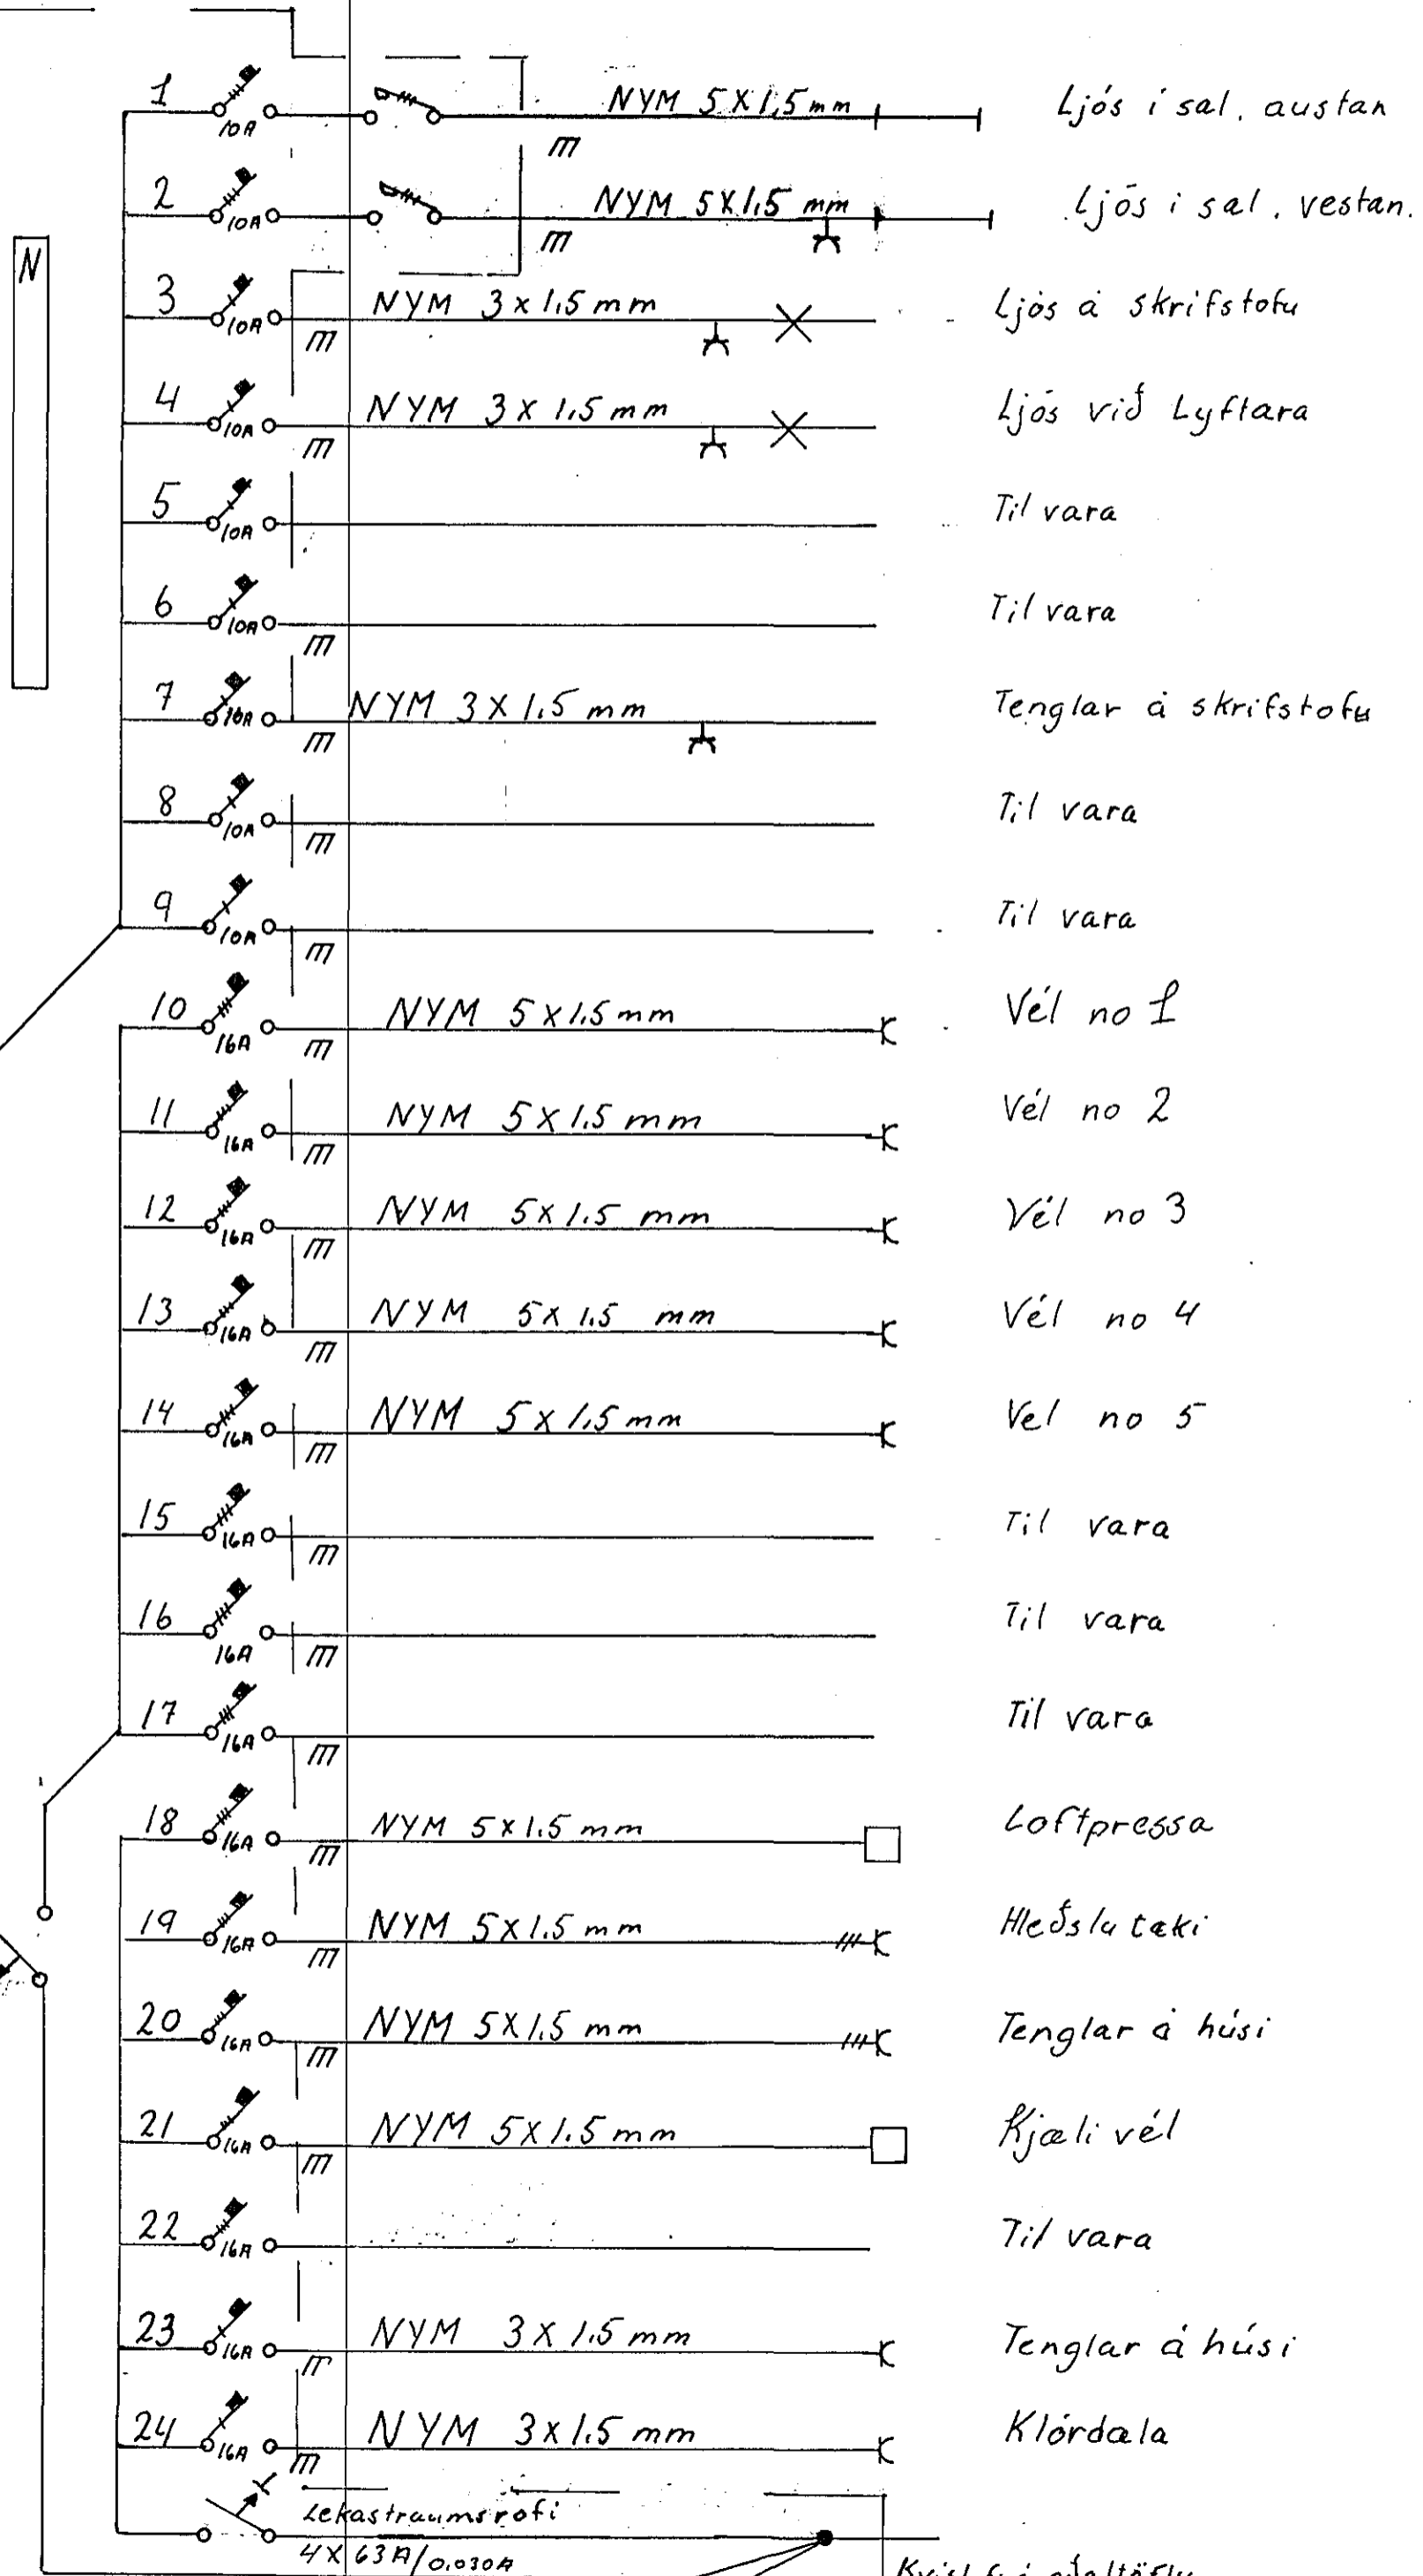 N
1 10A NYM 5X1,5mm m Ljós í sal. austan
2 10A NYM 5X1.5 mm m Ljós i sal. vestan.
3 10A m NYM 3x1.5mm Ljós á skrifstofu
4 10A m NYM 3X1.5mm Ljós við Lyftara
5 10A Til vara
6 10A m Til vara
7 10A m NYM 3X1.5 mm Tenglar á skrifstofu
8 10A m Til vara
9 10A m Til vara
10 16A m NYM 5X1.5mm Vél no 1
11 16A m NYM 5X1.5mm Vél no 2
12 16A m NYM 5X1.5 mm Vél no 3
13 16A m NYM 5X1.5 mm Vél no 4
14 16A m NYM 5X1.5mm Vel no 5
15 16A m Til vara
16 16A m Til vara
17 16A m Til vara
18 16A m NYM 5X1.5 mm Loftpressa
19 16A m NYM 5X1.5 mm Hleðslu tæki
20 16A m NYM 5X1.5 mm Tenglar á húsi
21 16A m NYM 5X1.5 mm Kjæli vél
22 16A Til vara
23 16A m NYM 3X1.5mm Tenglar á húsi
24 16A m NYM 3X1.5mm Klórdæla
Lekastraumsrofi
4X63A/0.030A